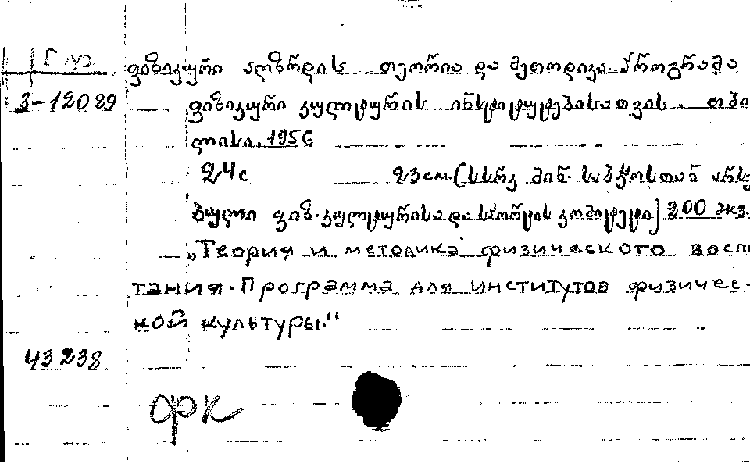 ფიზიკური აღზრდის თეორია და მეთოდიკა პროგრამა
3-12089
ფიზიკური კულტურის ინსტიტუტებისათვის. თბი
ლისი. 1956
24с 23см (სსრკ მინ. საბჭოსთან არსე
ბული ფიზ. კულტურისა და სპორტის კომიტეტი) 200 экз.
„Теория и методика физического восп
тания. Программа для институтов физичес-
кой культуры."
43238
ФК